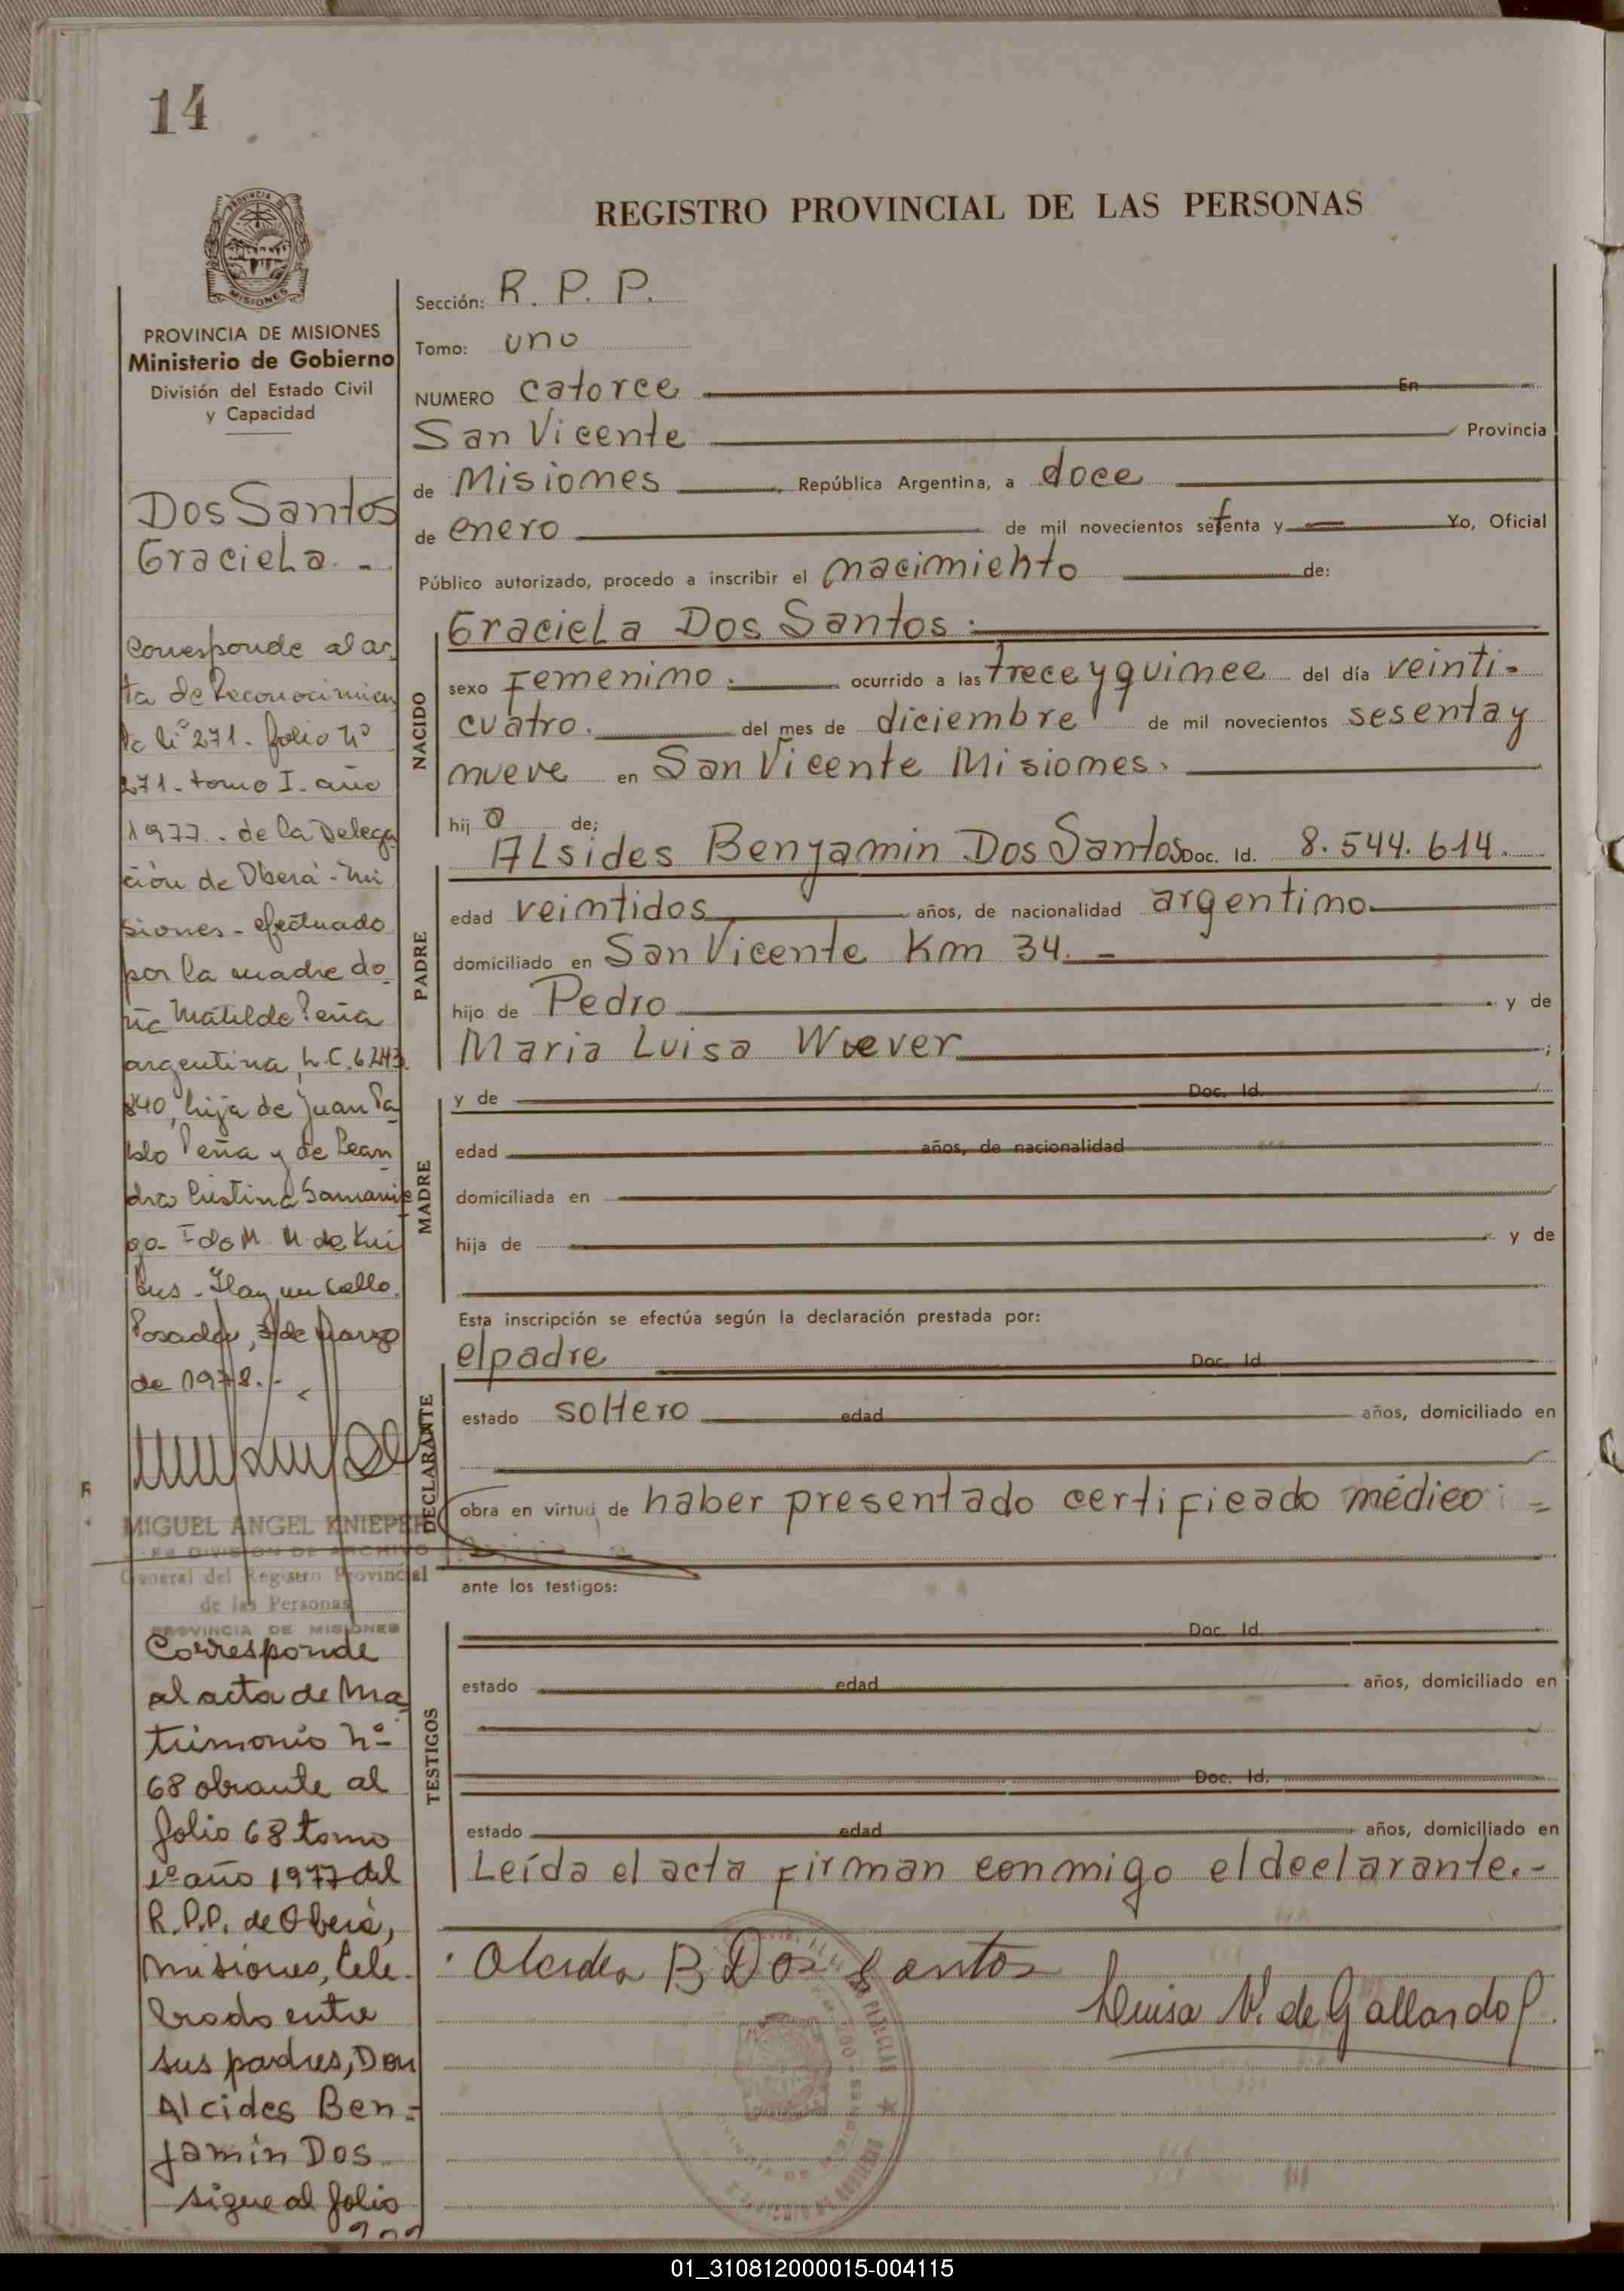 14
REGISTRO PROVINCIAL DE LAS PERSONAS
PROVINCIA DE MISIONES
Ministerio de Gobierno
División del Estado Civil
y Capacidad
Dos Santos
Graciela. -
Corresponde al ac
ta de Reconocimien
to nº 271. folio nº
271. tomo I. año
1977. - de la Delega
ción de Oberá - Mi
siones - efectuado
por la madre do
ña Matilde Peña
argentina, L.C. 6243
840, hija de Juan Pa
blo Peña y de Lean
dra Cristina Samanie
go - Fdo M. M. de
- Hay un sello.
Posadas, 3 de Marzo
de 1978. -
MIGUEL ANGEL KNIEPER
DIVISION DE ARCHIVO
General del Registro Provincial
de las Personas
PROVINCIA DE MISIONES
Corresponde
al acta de Ma
trimonio nº
68 obrante al
folio 68 tomo
1º año 1977 del
R.P.P. de Oberá,
Misiones, Cele-
brado entre
sus padres, Don
Alcides Ben-
jamin Dos
sigue al folio
Sección: R. P. P.
Tomo: uno
NUMERO catorce En
San Vicente Provincia
de Misiones, República Argentina, a doce
de enero de mil novecientos setenta y Yo, Oficial
Público autorizado, procedo a inscribir el nacimiento de:
NACIDO
Graciela Dos Santos.
sexo Femenino. ocurrido a las trece y quince del día veinti-
cuatro. del mes de diciembre de mil novecientos sesenta y
nueve en San Vicente Misiones.
hij a de;
PADRE
Alsides Benjamin Dos Santos Doc. Id. 8.544.614.
edad veintidos años, de nacionalidad argentino
domiciliado en San Vicente Km 34. -
hijo de Pedro y de
Maria Luisa Wever ;
MADRE
y de Doc. Id.
edad años, de nacionalidad
domiciliada en
hija de y de
Esta inscripción se efectúa según la declaración prestada por:
DECLARANTE
el padre Doc. Id.
estado soltero edad años, domiciliado en
obra en virtud de haber presentado certificado médico. =
ante los testigos:
TESTIGOS
Doc. Id.
estado edad años, domiciliado en
Doc. Id.
estado edad años, domiciliado en
Leída el acta firman conmigo el declarante. -
B Dos Santos
Luisa V. de Gallardo
01_310812000015-004115